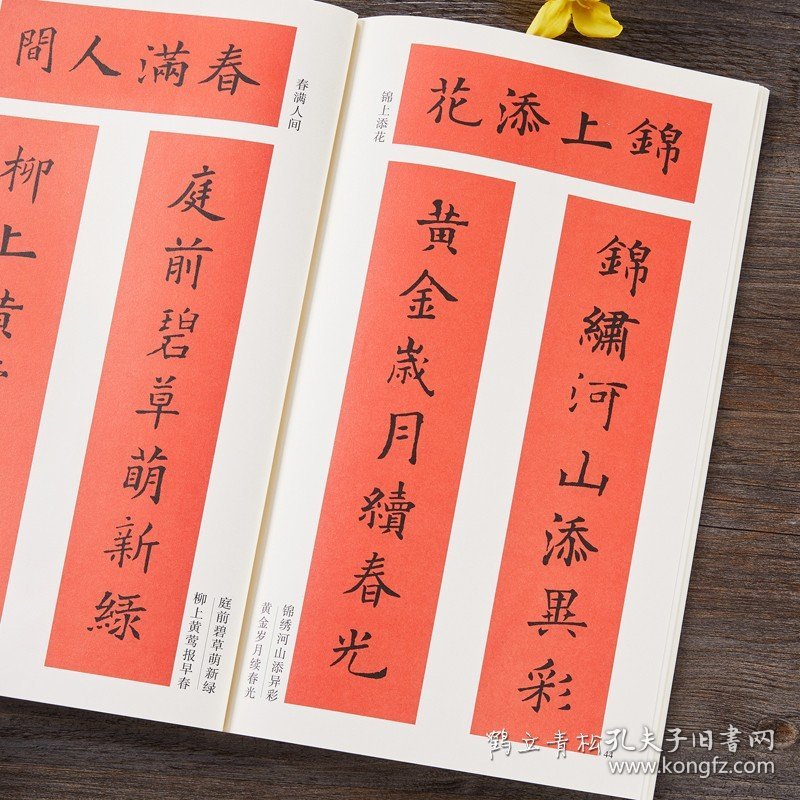 錦上添花
锦上添花
錦繡河山添異彩
黃金歲月續春光
锦绣河山添异彩
黄金岁月续春光
44
春滿人間
春满人间
庭前碧草萌新緑
柳上黃
庭前碧草萌新绿
柳上黄莺报早春
鹤立青松 孔夫子旧书网
www.kongfz.com